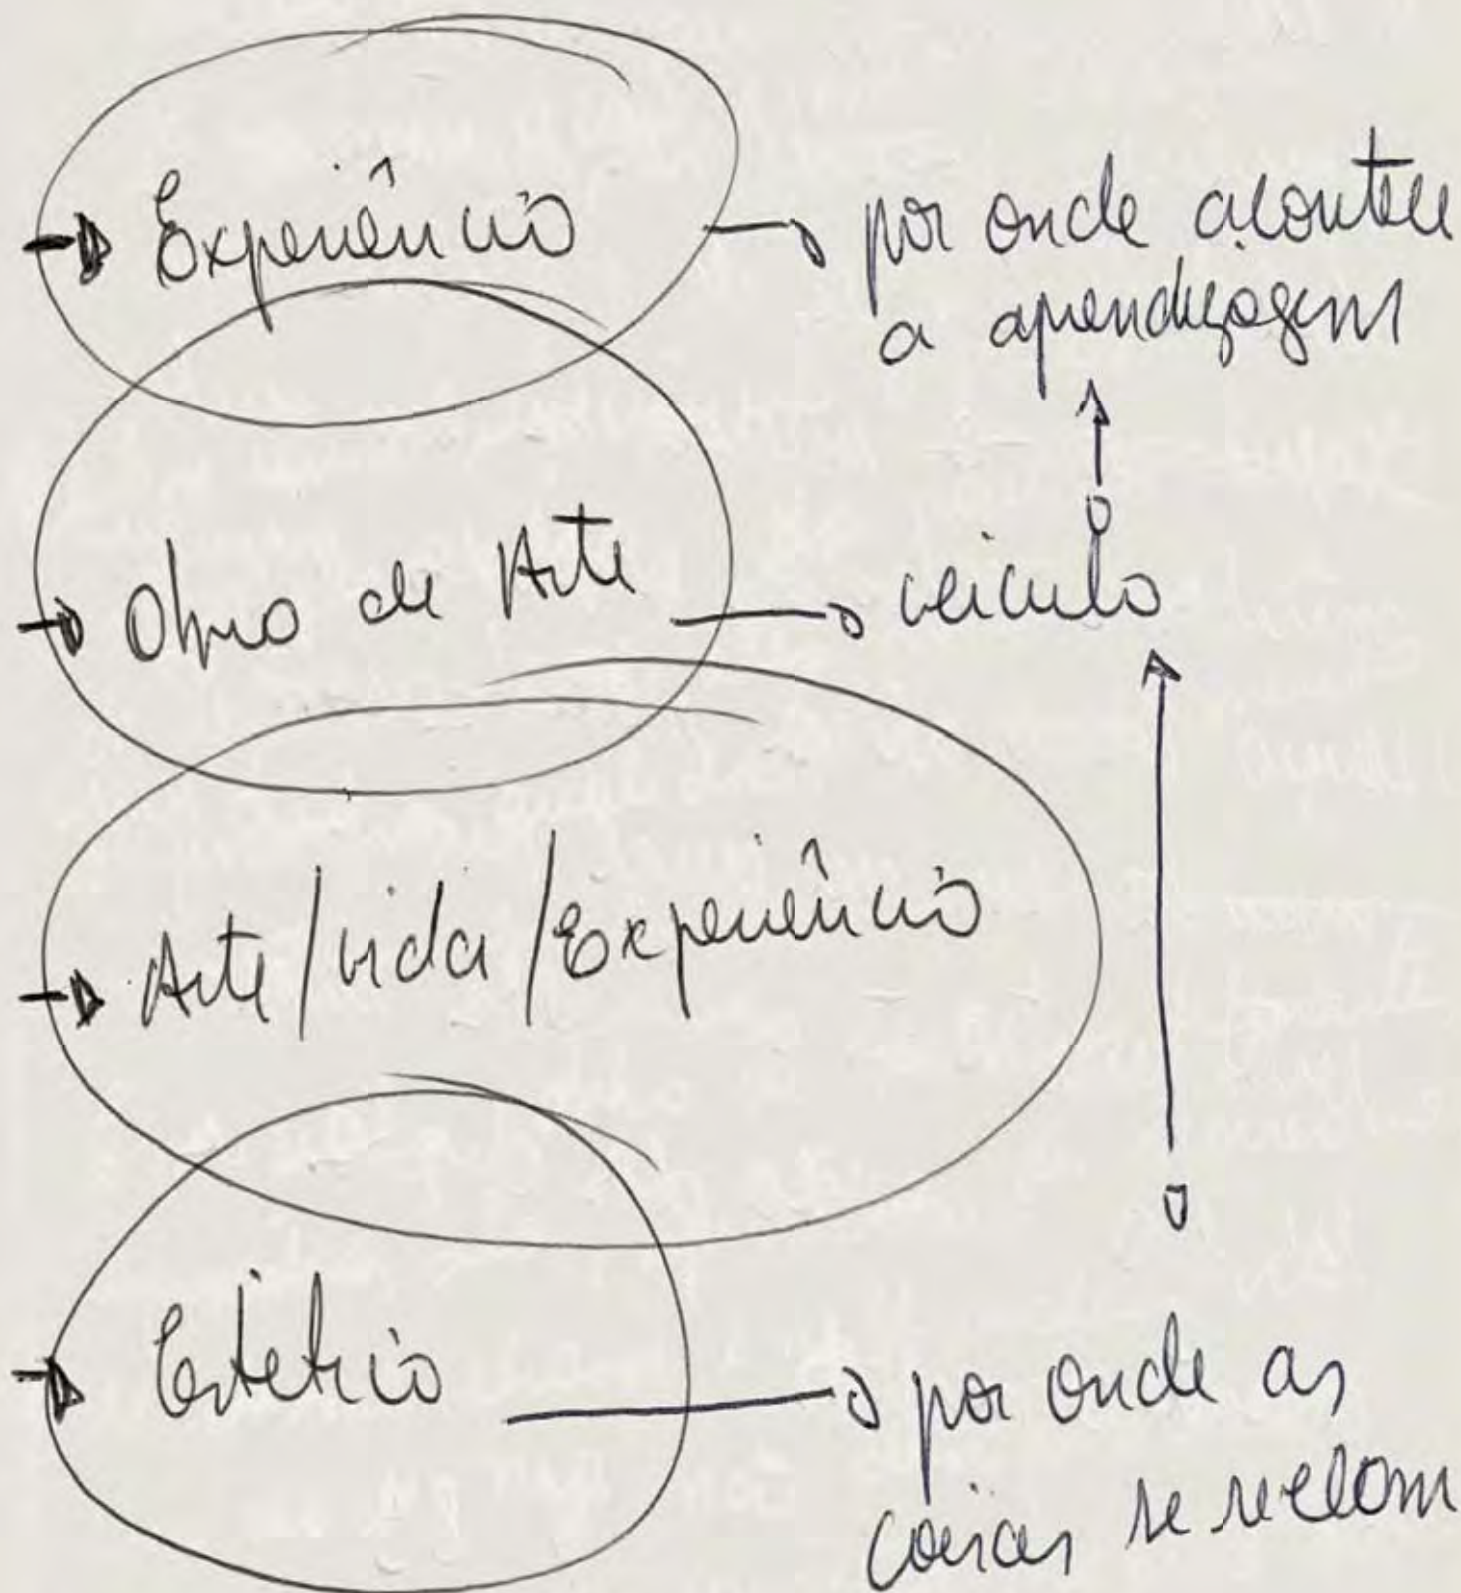 Experiência
por onde acontece
a aprendizagem
Obra de Arte
veiculo
Arte/vida/Experiência
Estética
por onde as
coisas se revelam